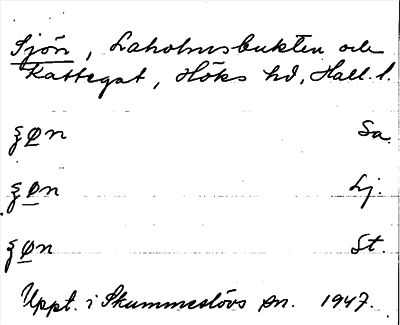 Sjön, Laholmsbukten och
Kattegat, Höks hd, Hall. l.
ʒø̲n Sa.
ʒø̲n Lj.
ʒø̲n St.
Uppt. i Skummeslövs sn. 1947.